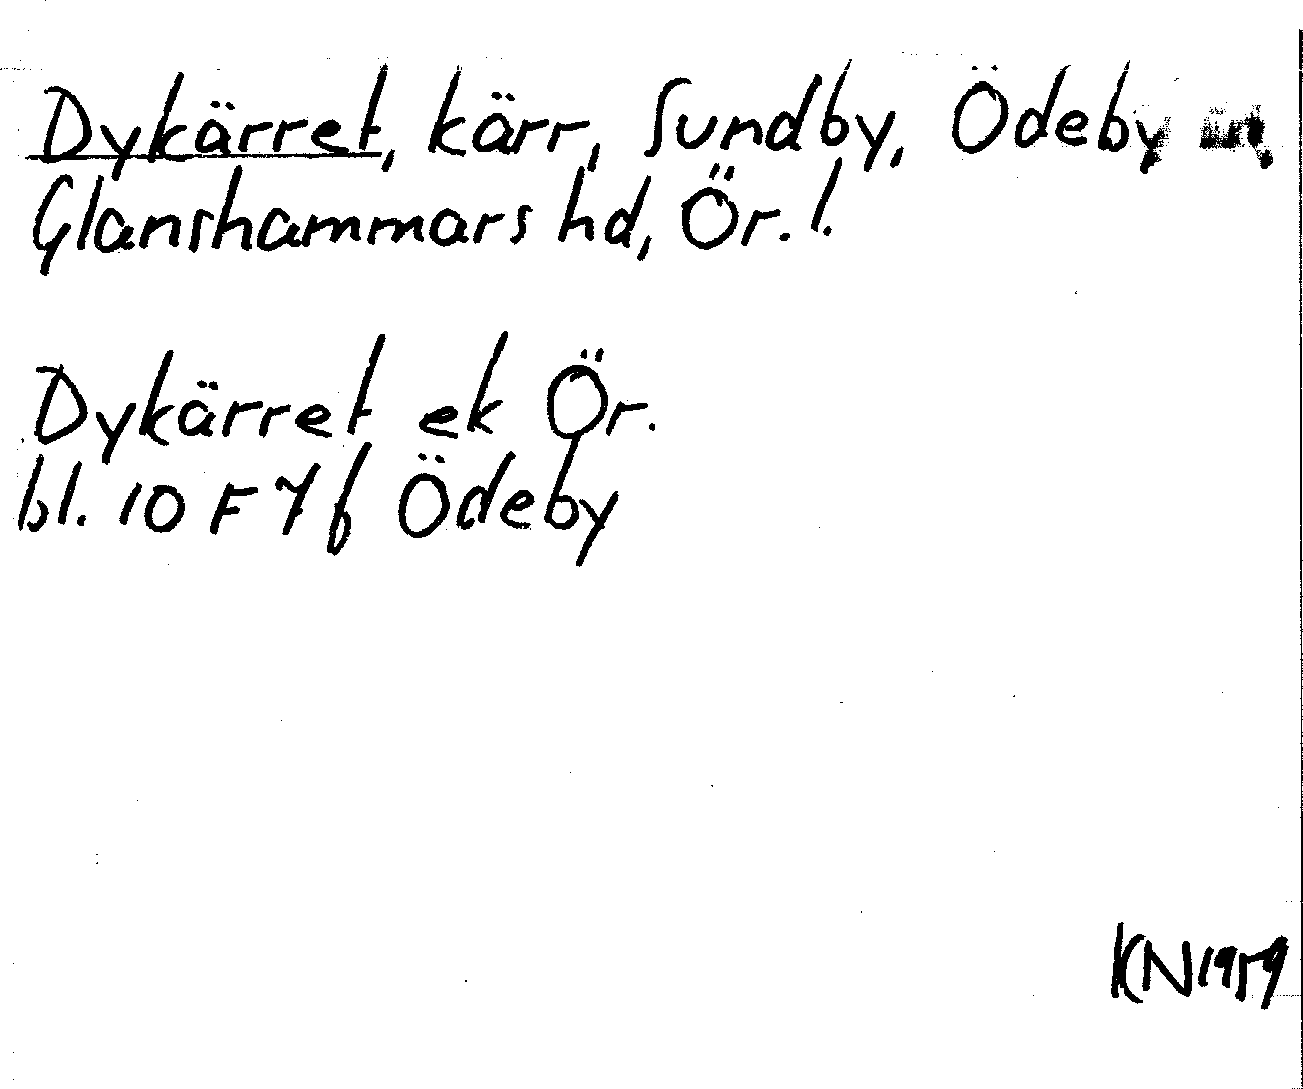 Dykärret, kärr, Sundby, Ödeby
Glanshammars hd, Ör. l.
Dykärret ek Ör.
bl. 10 F 7 f Ödeby
KN 1959